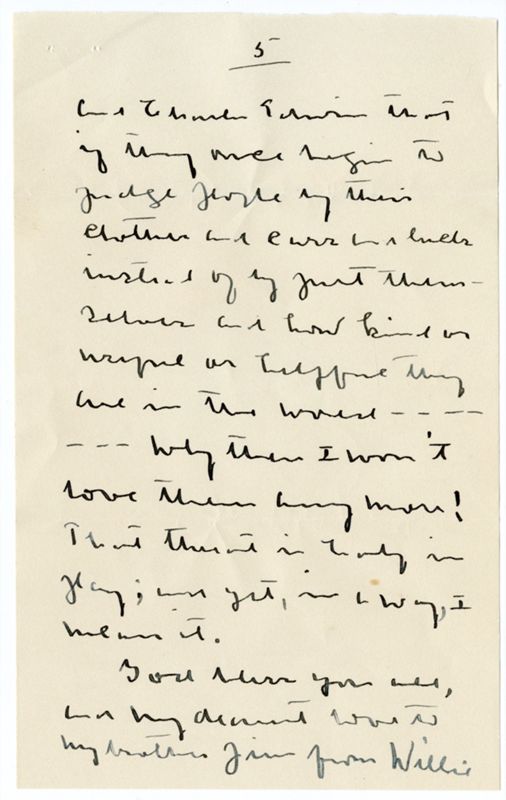 5
and Charles Edwin that
if they once begin to
judge people by their
clothes and cars and
instead of by just them-
selves and how kind or
or helpful they
are in the world - - - -
- - - Why then I won't
love them any more!
That threat is partly in
play; and yet, in a way, I
mean it.
God bless you all,
and my dearest love to
my brother Jim from Willie